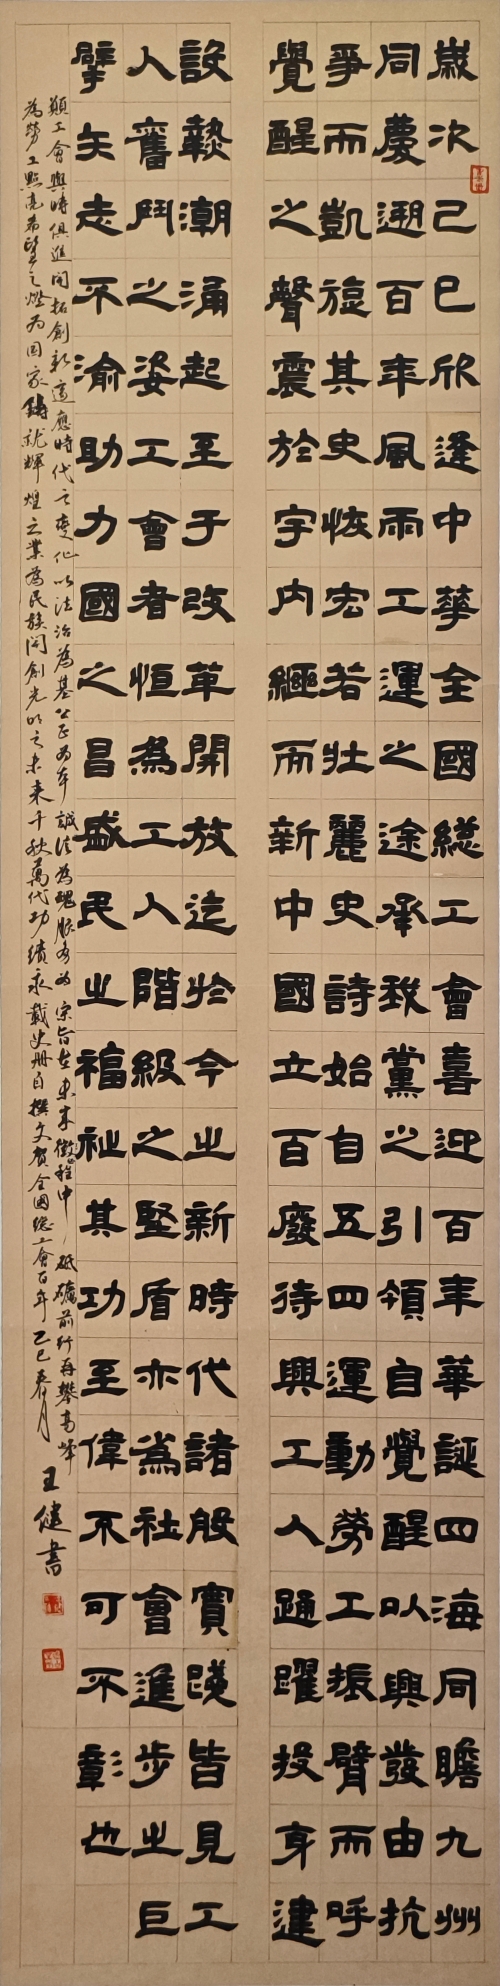 歲次己巳欣逢中華全國総工會喜迎百年華誕四海同瞻九州
同慶遡百年風雨工運之途承我黨之引領自覺醒以興發由抗
爭而凱旋其史恢宏若壯麗史詩始自五四運動勞工振臂而呼
覺醒之聲震於宇内繼而新中國立百廢待興工人踴躍投身建
設熱潮涌起至于改革開放迄於今之新時代諸般實踐皆見工
人奮鬥之姿工會者恒為工人階級之堅盾亦為社會進步之巨
擘矢志不渝助力國之昌盛民之福祉其功至偉不可不彰也
願工會與時俱進開拓創新適應時代之變化以法治為基公正為本誠信為魂服務為宗旨在未來徵程中砥礪前行再攀高峰
為勞工點亮希望之燈為國家鑄就輝煌之業為民族開創光明之未來千秋萬代功績永載史冊自撰文賀全國總工會百年乙巳春月王健書